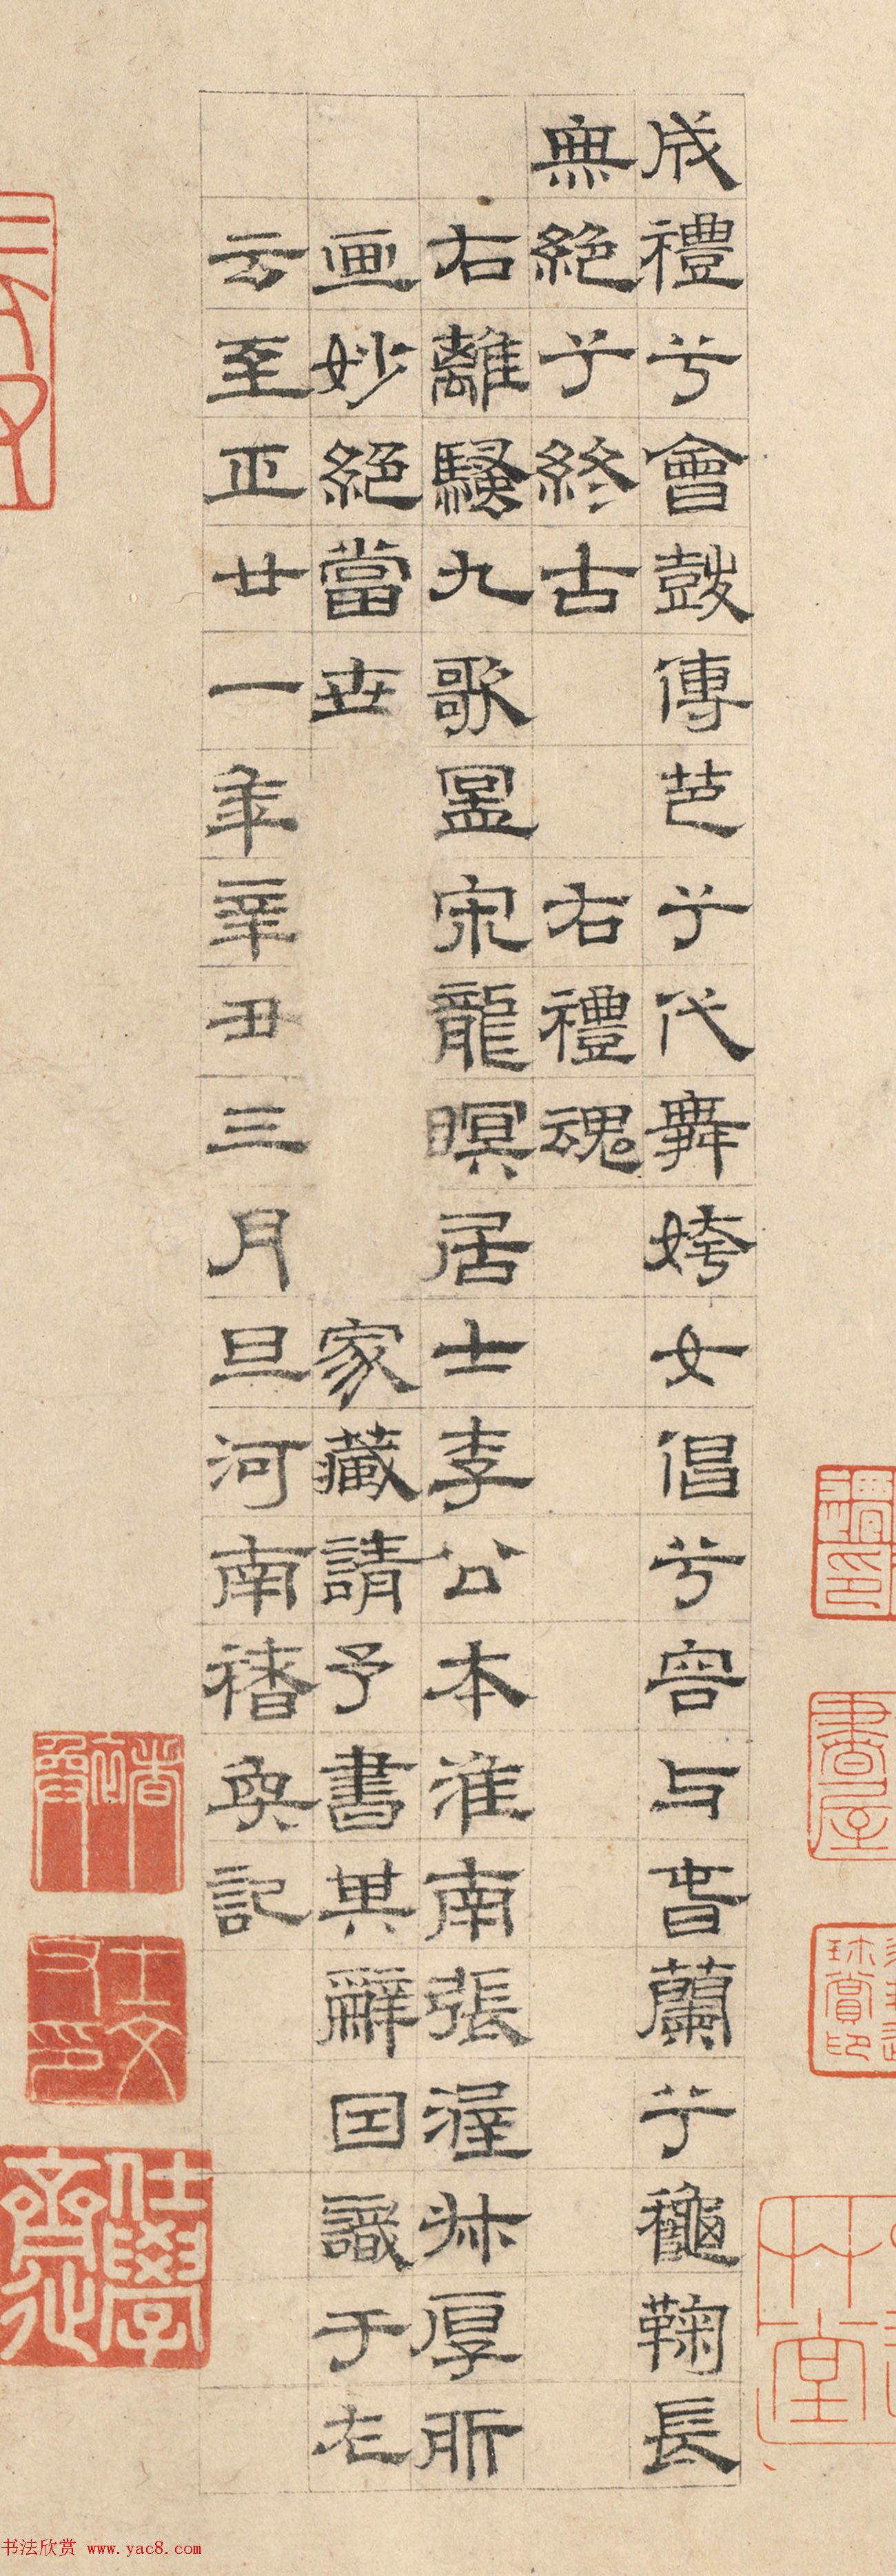 成禮兮會鼓傳芭兮代舞姱女倡兮容与春蘭兮秋鞠長
無絕兮終古 右禮魂
右離騷九歌圖宋龍瞑居士李公本淮南張渥叔厚所
画妙絕當世 家藏請予書其辭因識于左
云至正廿一年辛丑三月旦河南褚奐記
書屋
士文
仕學齋記
书法欣赏 www.yac8.com